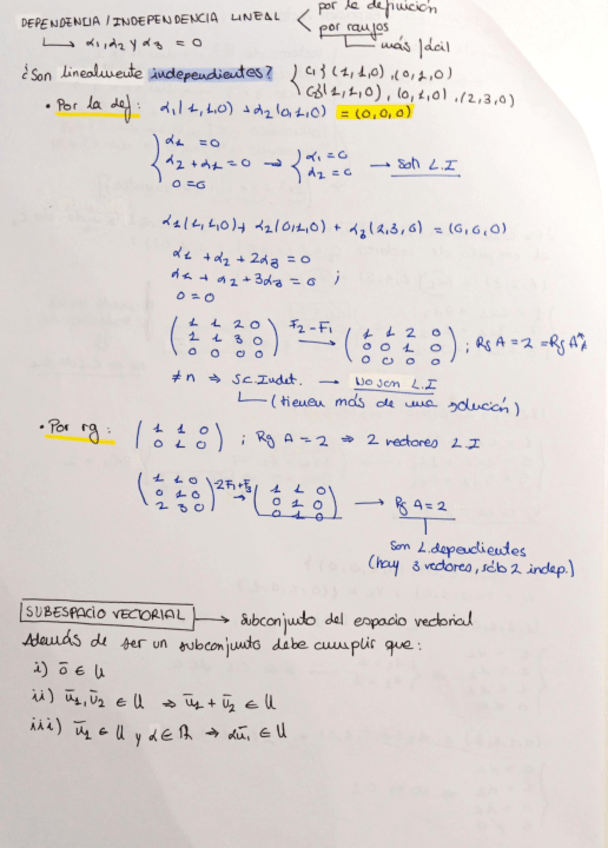 DEPENDENCIA / INDEPENDENCIA LINEAL
por la definición
por rangos
más fácil
α₁, α₂ y α₃ = 0
¿Son linealmente independientes?
{(1,1,0), (0,1,0)
(1,1,0), (0,1,0), (2,3,0)
• Por la def: α₁(1,1,0) + α₂(0,1,0) = (0,0,0)
{ α₁ = 0
α₂ + α₁ = 0 ⇒ { α₁ = 0
0 = 0 α₂ = 0 → Son L.I
α₁(1,1,0) + α₂(0,1,0) + α₃(2,3,0) = (0,0,0)
α₁ + α₂ + 2α₃ = 0
α₁ + α₂ + 3α₃ = 0 ;
0 = 0
( 1 1 2 0 F₂-F₁ ( 1 1 2 0
1 1 3 0 → 0 0 1 0 ; Rg A = 2 = Rg A*
0 0 0 0 ) 0 0 0 0 )
≠ n ⇒ S.C. Indet. → No son L.I
(tienen más de una solución)
• Por rg: ( 1 1 0
0 1 0 ) ; Rg A = 2 ⇒ 2 vectores L.I
( 1 1 0 -2F₁+F₃ ( 1 1 0
0 1 0 → 0 1 0 → Rg A = 2
2 3 0 ) 0 1 0 )
Son L. dependientes
(hay 3 vectores, sólo 2 indep.)
SUBESPACIO VECTORIAL → subconjunto del espacio vectorial
Además de ser un subconjunto debe cumplir que:
i) ō ∈ U
ii) ū₁, ū₂ ∈ U ⇒ ū₁ + ū₂ ∈ U
iii) ū₁ ∈ U y α ∈ ℝ → αū₁ ∈ U